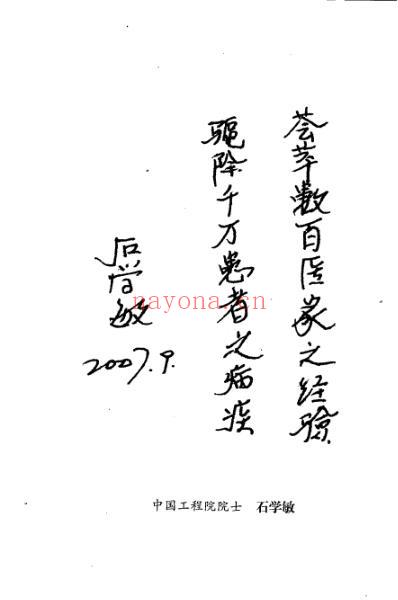 荟萃数百医家之经验
驱除千万患者之病疾
石学敏
2007.9.
nayona.cn
中国工程院院士 石学敏